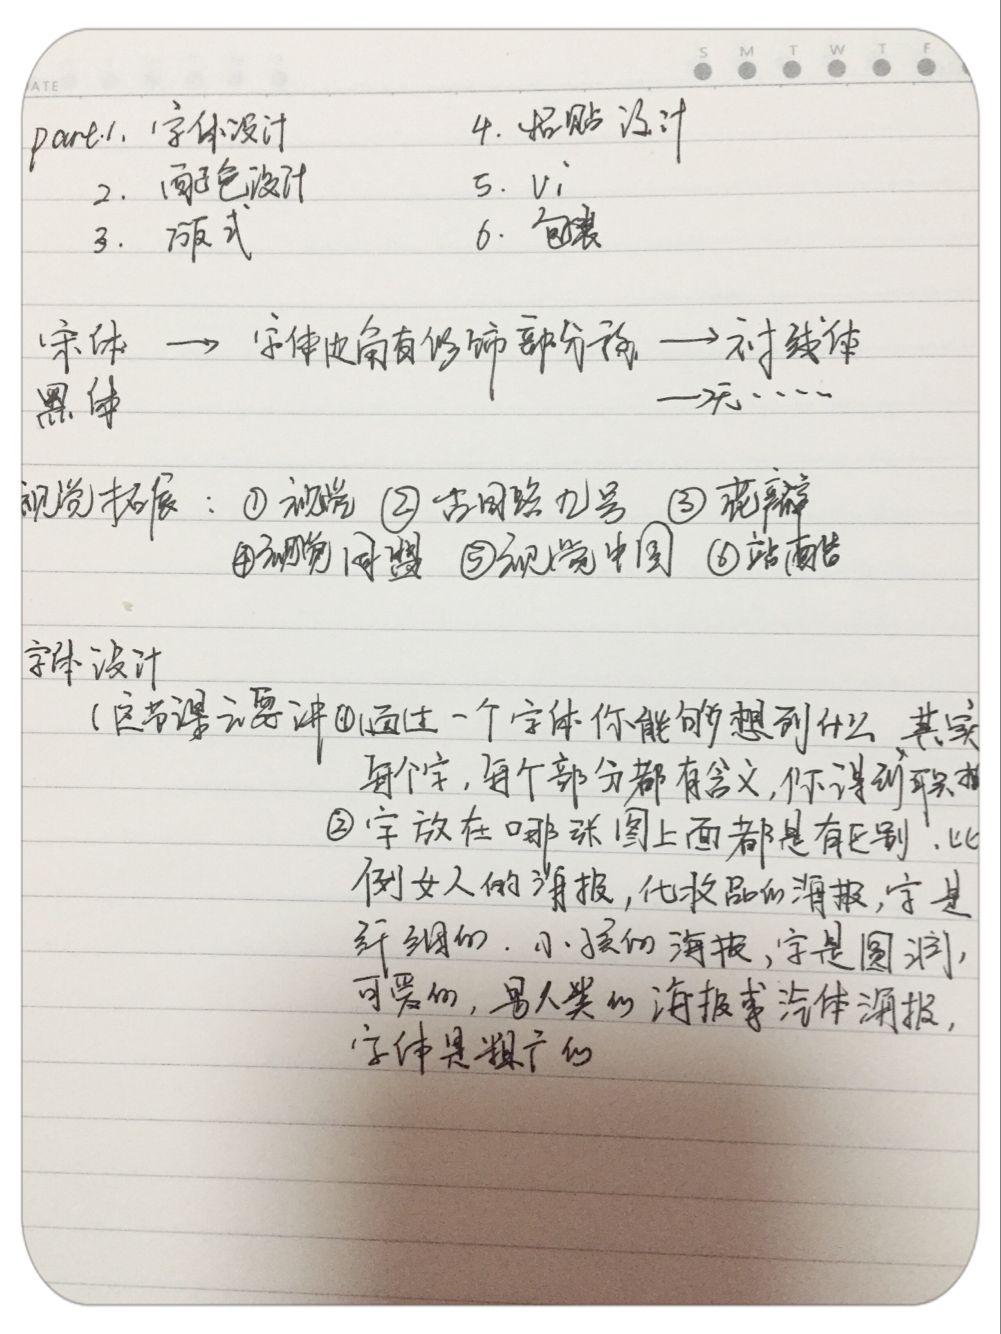 S M T W T F
ATE
part.1. 字体设计 4. 招贴设计
2. 配色设计 5. Vi
3. 版式 6. 包装
宋体 → 字体边角有修饰部分称 → 衬线体
黑体 → 无····
视觉拓展: ① 视觉 ② 古田路九号 ③ 花瓣
④视觉同盟 ⑤视觉中国 ⑥站酷
字体设计
(这节课主要讲①通过一个字体你能够想到什么 其实
每个字,每个部分都有含义,你得到联想
②字放在哪张图上面都是有区别.比
例女人的海报,化妆品的海报,字是
纤细的.小孩的海报,字是圆润,
可爱的,男人类的海报或汽体海报,
字体是粗广的